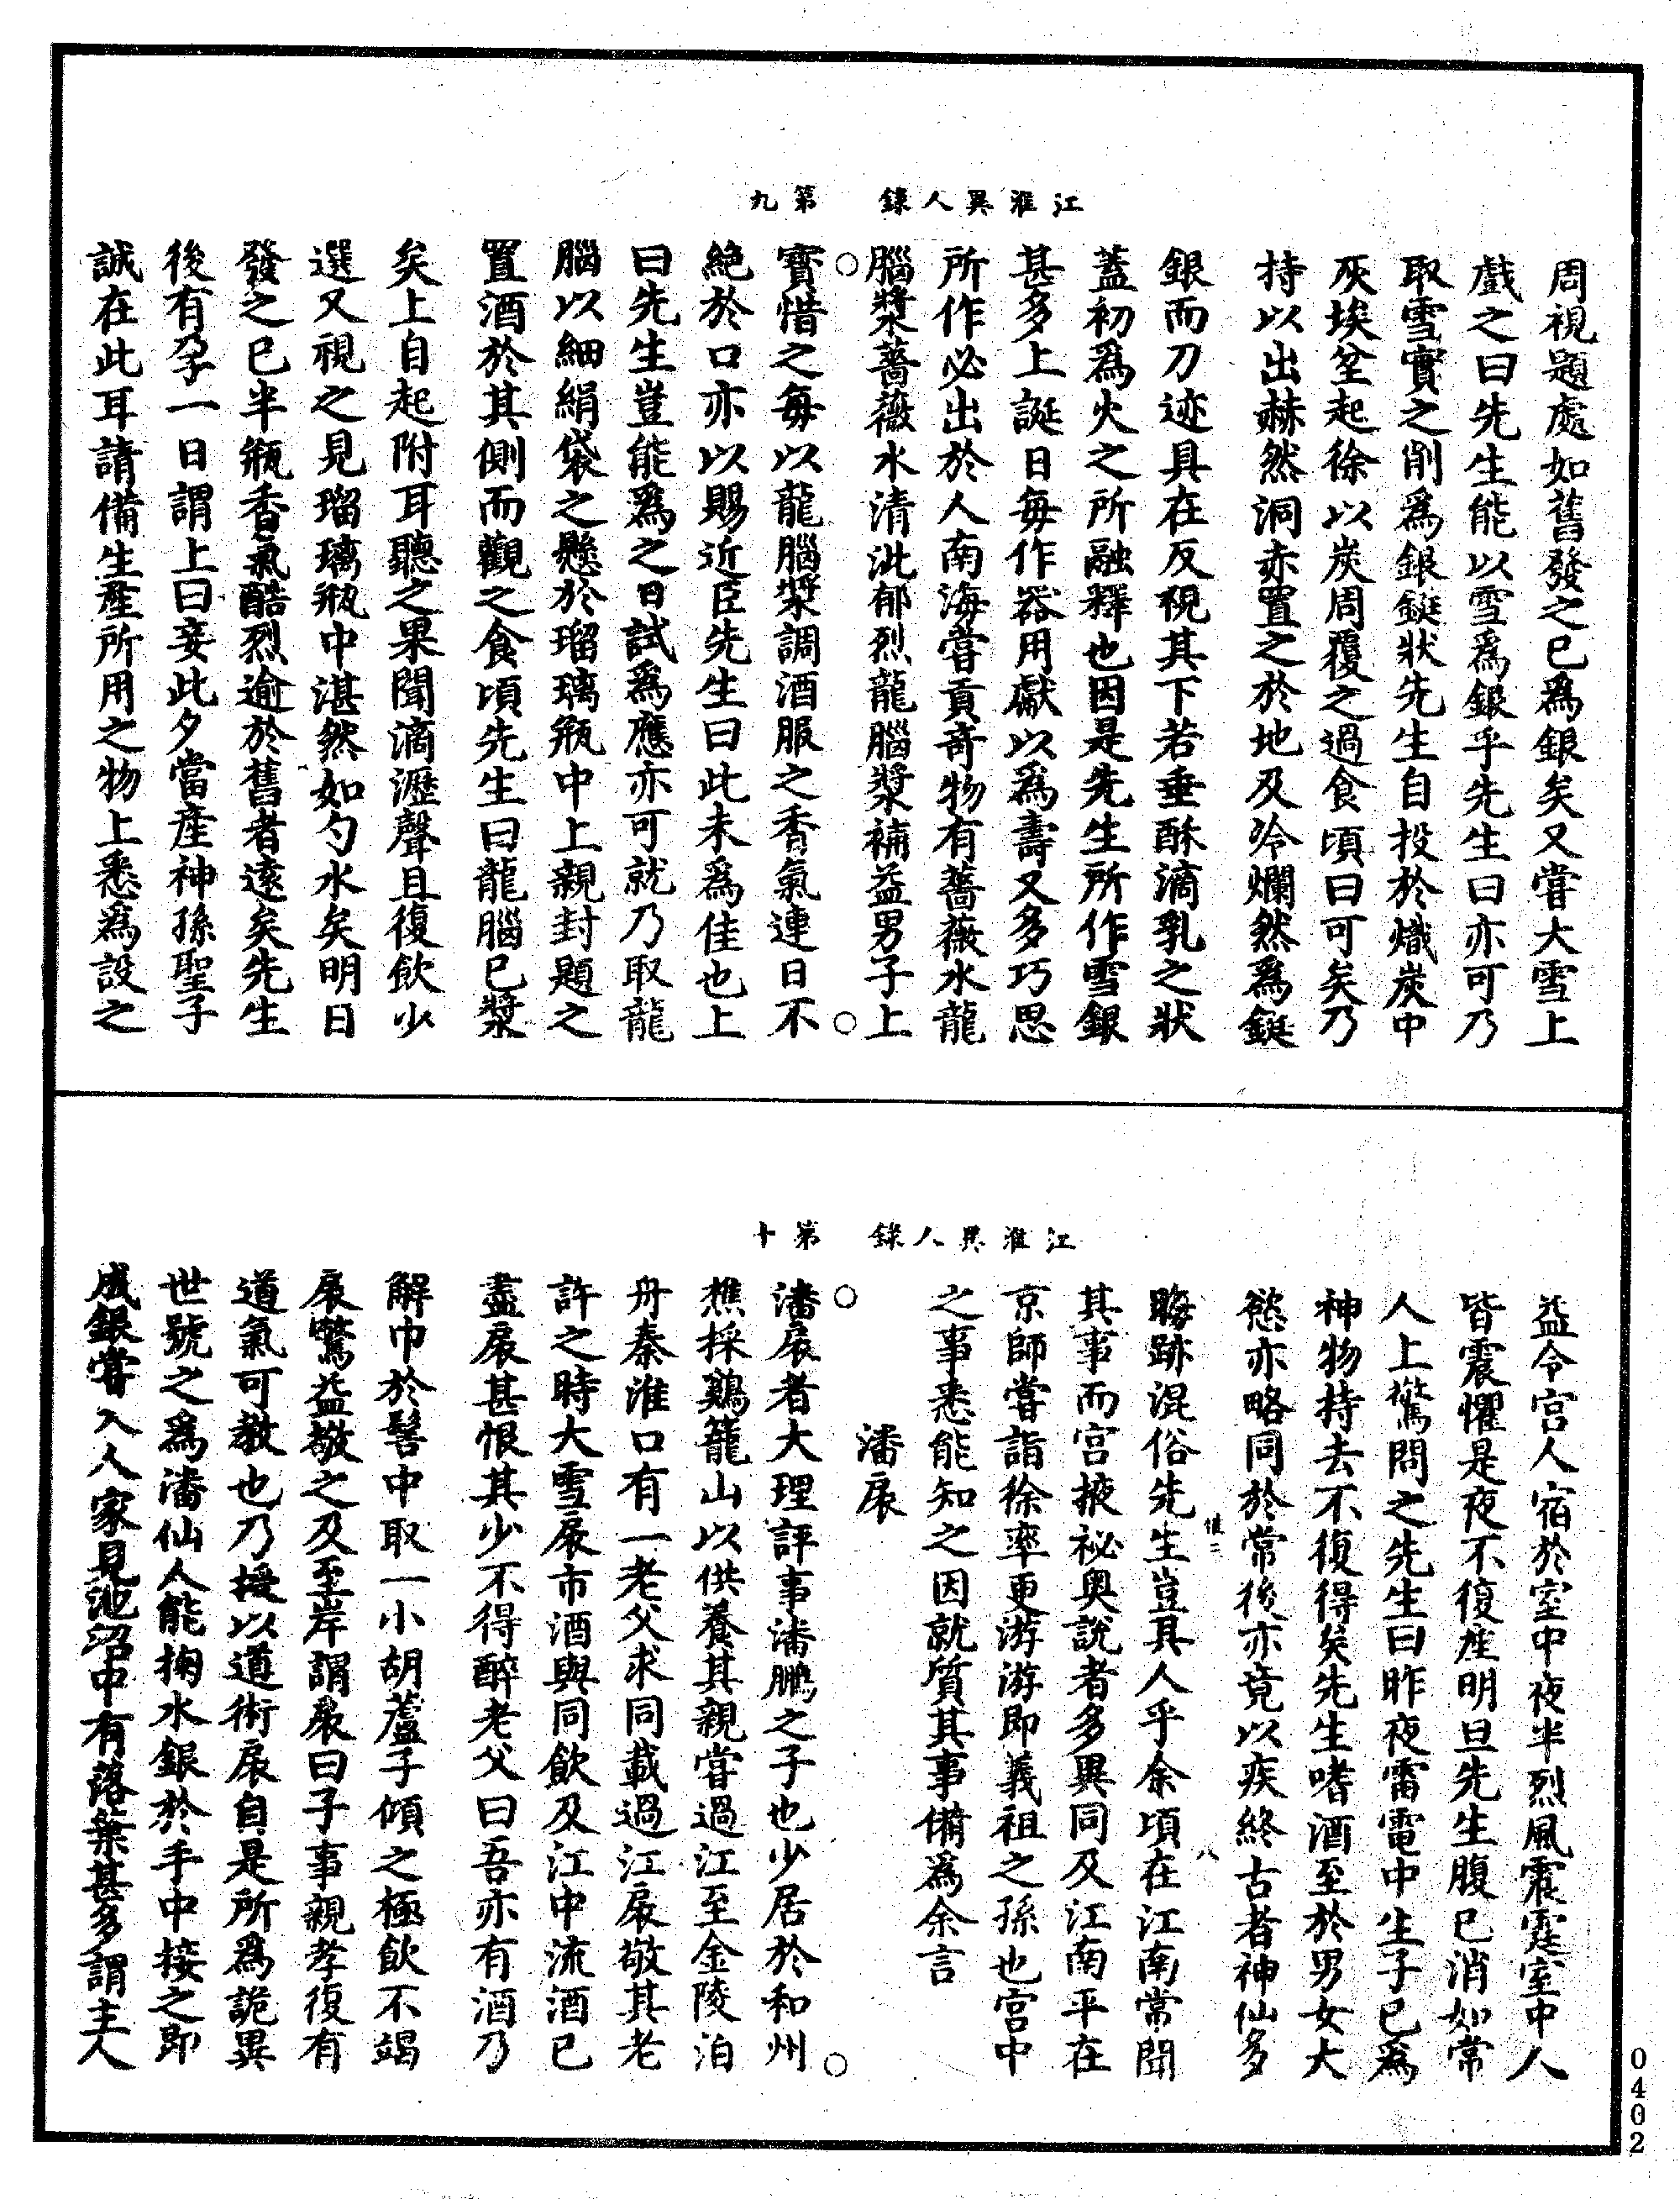 江淮異人錄　第九
周視題處如舊發之已爲銀矣又嘗大雪上
戲之曰先生能以雪爲銀乎先生曰亦可乃
取雪實之削爲銀鋌狀先生自投於熾炭中
灰埃坌起徐以炭周覆之過食頃曰可矣乃
持以出赫然洞赤置之於地及冷爛然爲鋌
銀而刀迹具在反視其下若垂酥滴乳之狀
蓋初爲火之所融釋也因是先生所作雪銀
甚多上誕日每作器用獻以爲壽又多巧思
所作必出於人南海嘗貢奇物有薔薇水龍
腦漿薔薇水清泚郁烈龍腦漿補益男子上
○寶惜之每以龍腦漿調酒服之香氣連日不○
絕於口亦以賜近臣先生曰此未爲佳也上
曰先生豈能爲之曰試爲應亦可就乃取龍
腦以細絹袋之懸於瑠璃瓶中上親封題之
置酒於其側而觀之食頃先生曰龍腦已漿
矣上自起附耳聽之果聞滴瀝聲且復飲少
選又視之見瑠璃瓶中湛然如勺水矣明日
發之已半瓶香氣酷烈逾於舊者遠矣先生
後有孕一日謂上曰妾此夕當產神孫聖子
誠在此耳請備生產所用之物上悉爲設之
江淮異人錄　第十
益令宮人宿於室中夜半烈風震霆室中人
皆震懼是夜不復產明旦先生腹已消如常
人上驚問之先生曰昨夜雷電中生子已爲
神物持去不復得矣先生嗜酒至於男女大
慾亦略同於常後亦竟以疾終古者神仙多
惟二　八
晦跡混俗先生豈其人乎余頃在江南常聞
其事而宮掖祕奧說者多異同及江南平在
京師嘗詣徐率更游游即義祖之孫也宮中
之事悉能知之因就質其事備爲余言
潘扆
○潘扆者大理評事潘鵬之子也少居於和州○
樵採鷄籠山以供養其親嘗過江至金陵泊
舟秦淮口有一老父求同載過江扆敬其老
許之時大雪扆市酒與同飲及江中流酒已
盡扆甚恨其少不得醉老父曰吾亦有酒乃
解巾於髻中取一小胡蘆子傾之極飲不竭
扆驚益敬之及至岸謂扆曰子事親孝復有
道氣可教也乃授以道術扆自是所爲詭異
世號之爲潘仙人能掬水銀於手中接之即
成銀嘗入人家見池沼中有落葉甚多謂主人
0402